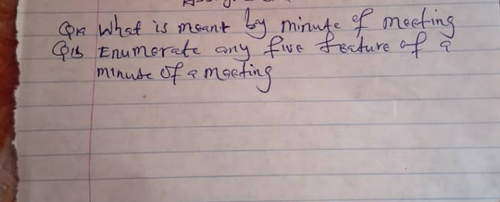 Q1a What is meant by minute of meeting
Q1b Enumerate any five feature of a
minute of a meeting